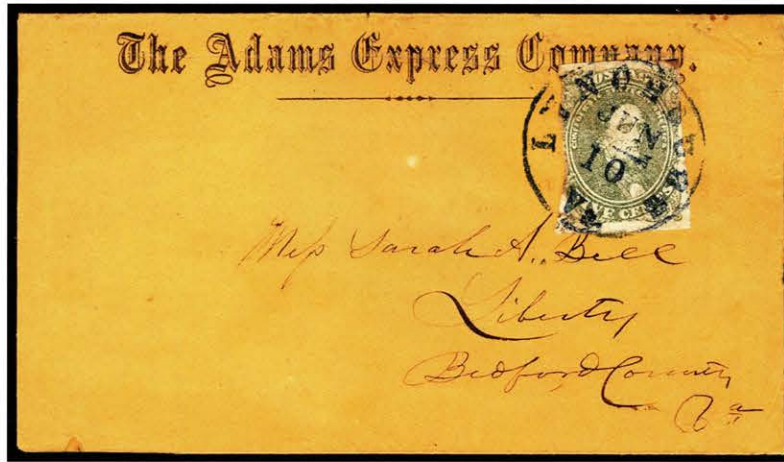 The Adams Express Company.
LYNCHBURG
JUN
10
VA
FIVE CENTS
Miss Sarah A. Bell
Liberty
Bedford County
Va